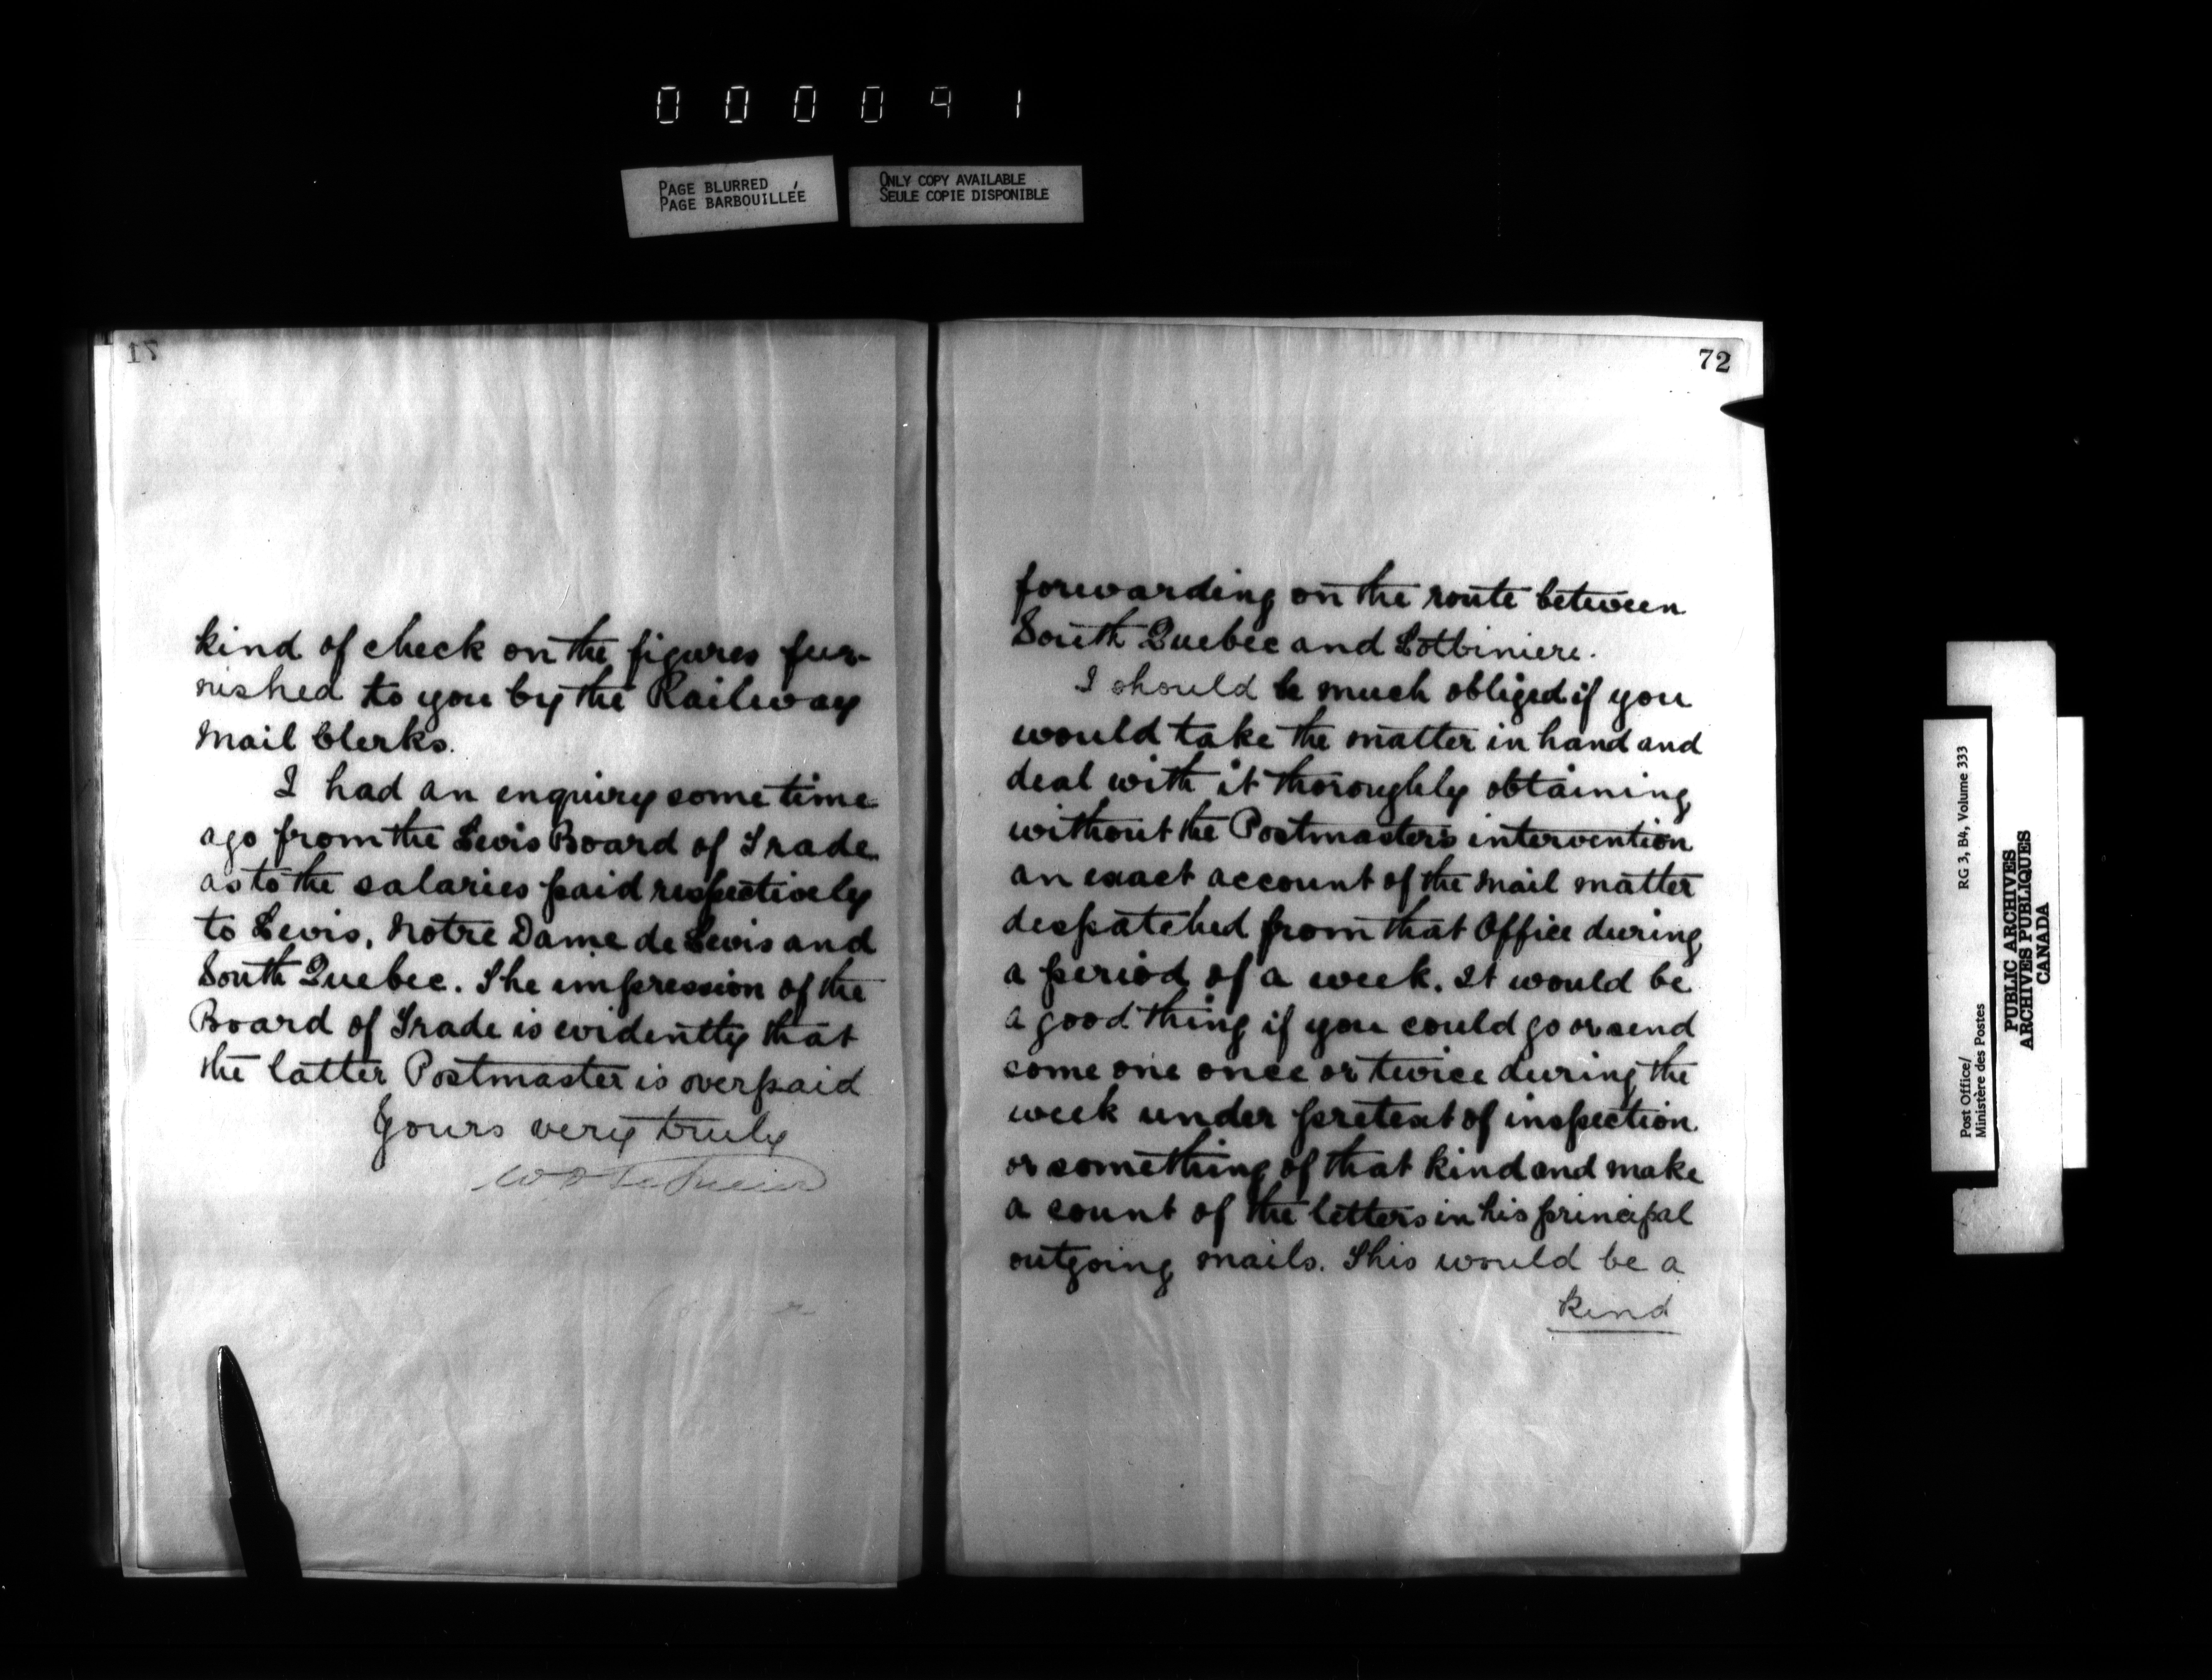 000091
PAGE BLURRED
PAGE BARBOUILLÉE
ONLY COPY AVAILABLE
SEULE COPIE DISPONIBLE
17
kind of check on the figures fur-
nished to you by the Railway
Mail Clerks.
I had an enquiry some time
ago from the Levis Board of Trade
as to the salaries paid respectively
to Levis, Notre Dame de Levis and
South Quebec. The impression of the
Board of Trade is evidently that
the latter Postmaster is overpaid
Yours very truly
72
forwarding on the route between
South Quebec and Lotbiniere.
I should be much obliged if you
would take the matter in hand and
deal with it thoroughly obtaining
without the Postmaster's intervention
an exact account of the mail matter
despatched from that Office during
a period of a week. It would be
a good thing if you could go or send
some one once or twice during the
week under pretext of inspection
or something of that kind and make
a count of the letters in his principal
outgoing mails. This would be a
kind
Post Office/
Ministère des Postes
RG 3, B4, Volume 333
PUBLIC ARCHIVES
ARCHIVES PUBLIQUES
CANADA